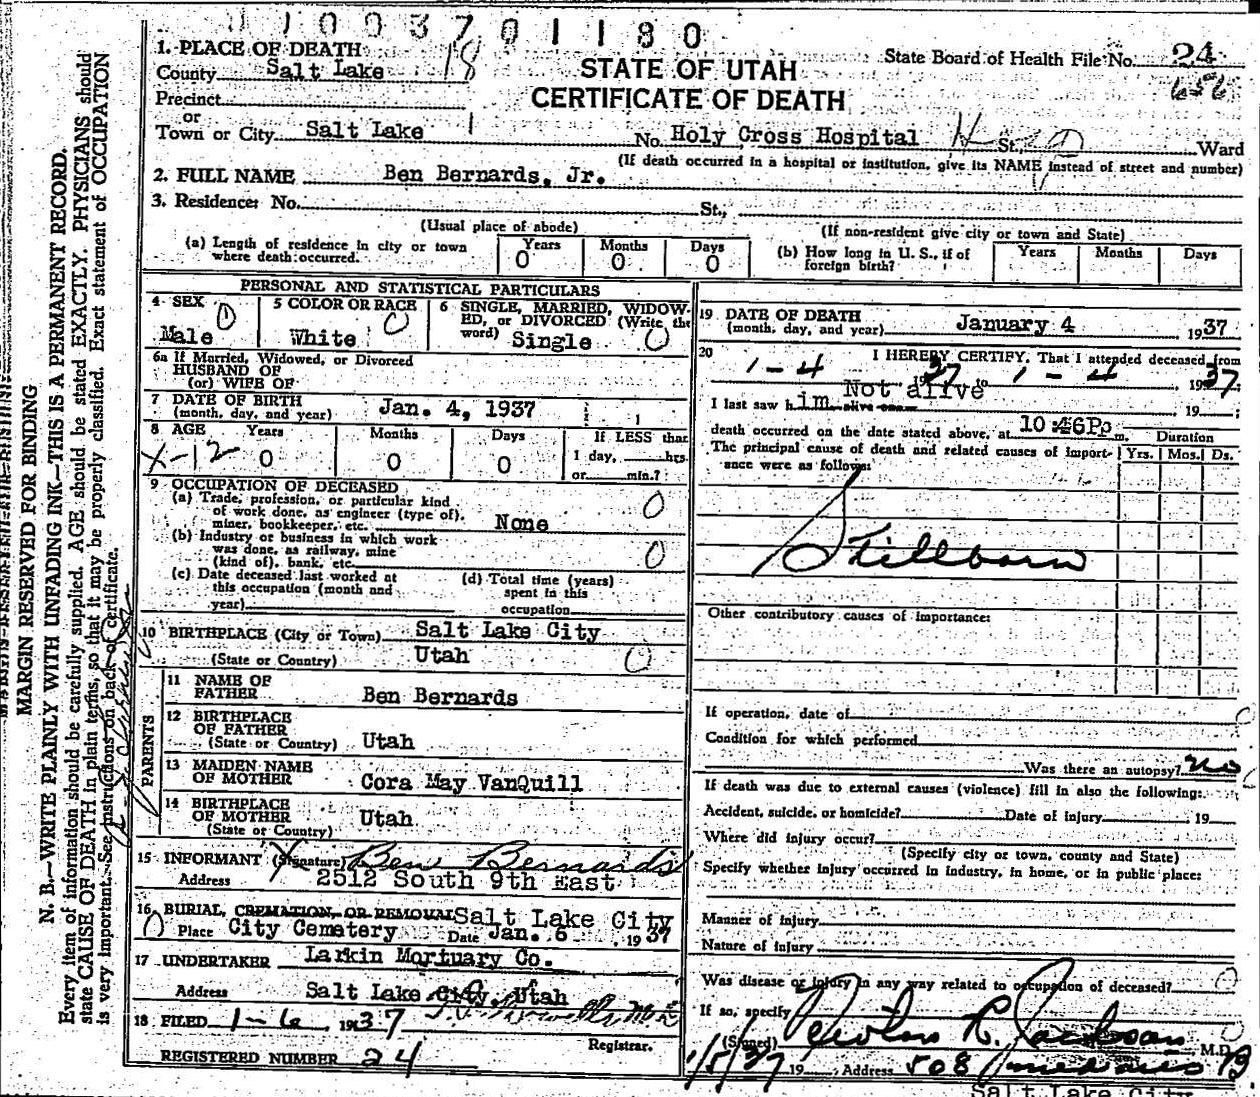 1003701180
1. PLACE OF DEATH
County Salt Lake 18
STATE OF UTAH
CERTIFICATE OF DEATH
State Board of Health File No. 24
656
Precinct
or
Town or City Salt Lake 1 No. Holy Cross Hospital St. Ward
(If death occurred in a hospital or institution, give its NAME instead of street and number)
2. FULL NAME Ben Bernards, Jr.
3. Residence: No. St.,
(Usual place of abode) (If non-resident give city or town and State)
(a) Length of residence in city or town where death occurred. Years 0 Months 0 Days 0
(b) How long in U. S., if of foreign birth? Years Months Days
PERSONAL AND STATISTICAL PARTICULARS
4 SEX Male 0
5 COLOR OR RACE White 0
6 SINGLE, MARRIED, WIDOWED, or DIVORCED (Write the word) Single 0
6a If Married, Widowed, or Divorced
HUSBAND OF
(or) WIFE OF
7 DATE OF BIRTH
(month, day, and year) Jan. 4, 1937
8 AGE Years 0 Months 0 Days 0 If LESS than
1 day, hrs.
or min.?
X-12
9 OCCUPATION OF DECEASED
(a) Trade, profession, or particular kind
of work done, as engineer (type of),
miner, bookkeeper, etc. None 0
(b) Industry or business in which work
was done, as railway, mine
(kind of), bank, etc. 0
(c) Date deceased last worked at
this occupation (month and
year)
(d) Total time (years)
spent in this
occupation
10 BIRTHPLACE (City or Town) Salt Lake City
(State or Country) Utah 0
PARENTS
11 NAME OF
FATHER Ben Bernards
12 BIRTHPLACE
OF FATHER
(State or Country) Utah
13 MAIDEN NAME
OF MOTHER Cora May VanQuill
14 BIRTHPLACE
OF MOTHER
(State or Country) Utah
15 INFORMANT (Signature) X Ben Bernards
Address 2512 South 9th East
16 BURIAL, CREMATION, OR REMOVAL Salt Lake City
0 Place City Cemetery Date Jan. 6 1937
17 UNDERTAKER Larkin Mortuary Co.
Address Salt Lake City, Utah
18 FILED 1-6, 1937
Registrar.
REGISTERED NUMBER 24
19 DATE OF DEATH
(month, day, and year) January 4 1937
20 I HEREBY CERTIFY, That I attended deceased from
1-4 1937 to 1-4 1937
Not alive
I last saw him alive on 19
death occurred on the date stated above, at 10:46P m.
The principal cause of death and related causes of importance were as follows:
Duration
Yrs. Mos. Ds.
Stillborn
Other contributory causes of importance:
If operation, date of
Condition for which performed
Was there an autopsy? no
If death was due to external causes (violence) fill in also the following:
Accident, suicide, or homicide? Date of injury 19
Where did injury occur?
(Specify city or town, county and State)
Specify whether injury occurred in industry, in home, or in public place:
Manner of Injury
Nature of Injury
Was disease or injury in any way related to occupation of deceased?
If so, specify
(Signed) M.D.
1/5/37 19 Address 508
Salt Lake City
MARGIN RESERVED FOR BINDING
N. B.—WRITE PLAINLY WITH UNFADING INK—THIS IS A PERMANENT RECORD.
Every item of information should be carefully supplied. AGE should be stated EXACTLY. PHYSICIANS should
state CAUSE OF DEATH in plain terms, so that it may be properly classified. Exact statement of OCCUPATION
is very important. See instructions on back of certificate.